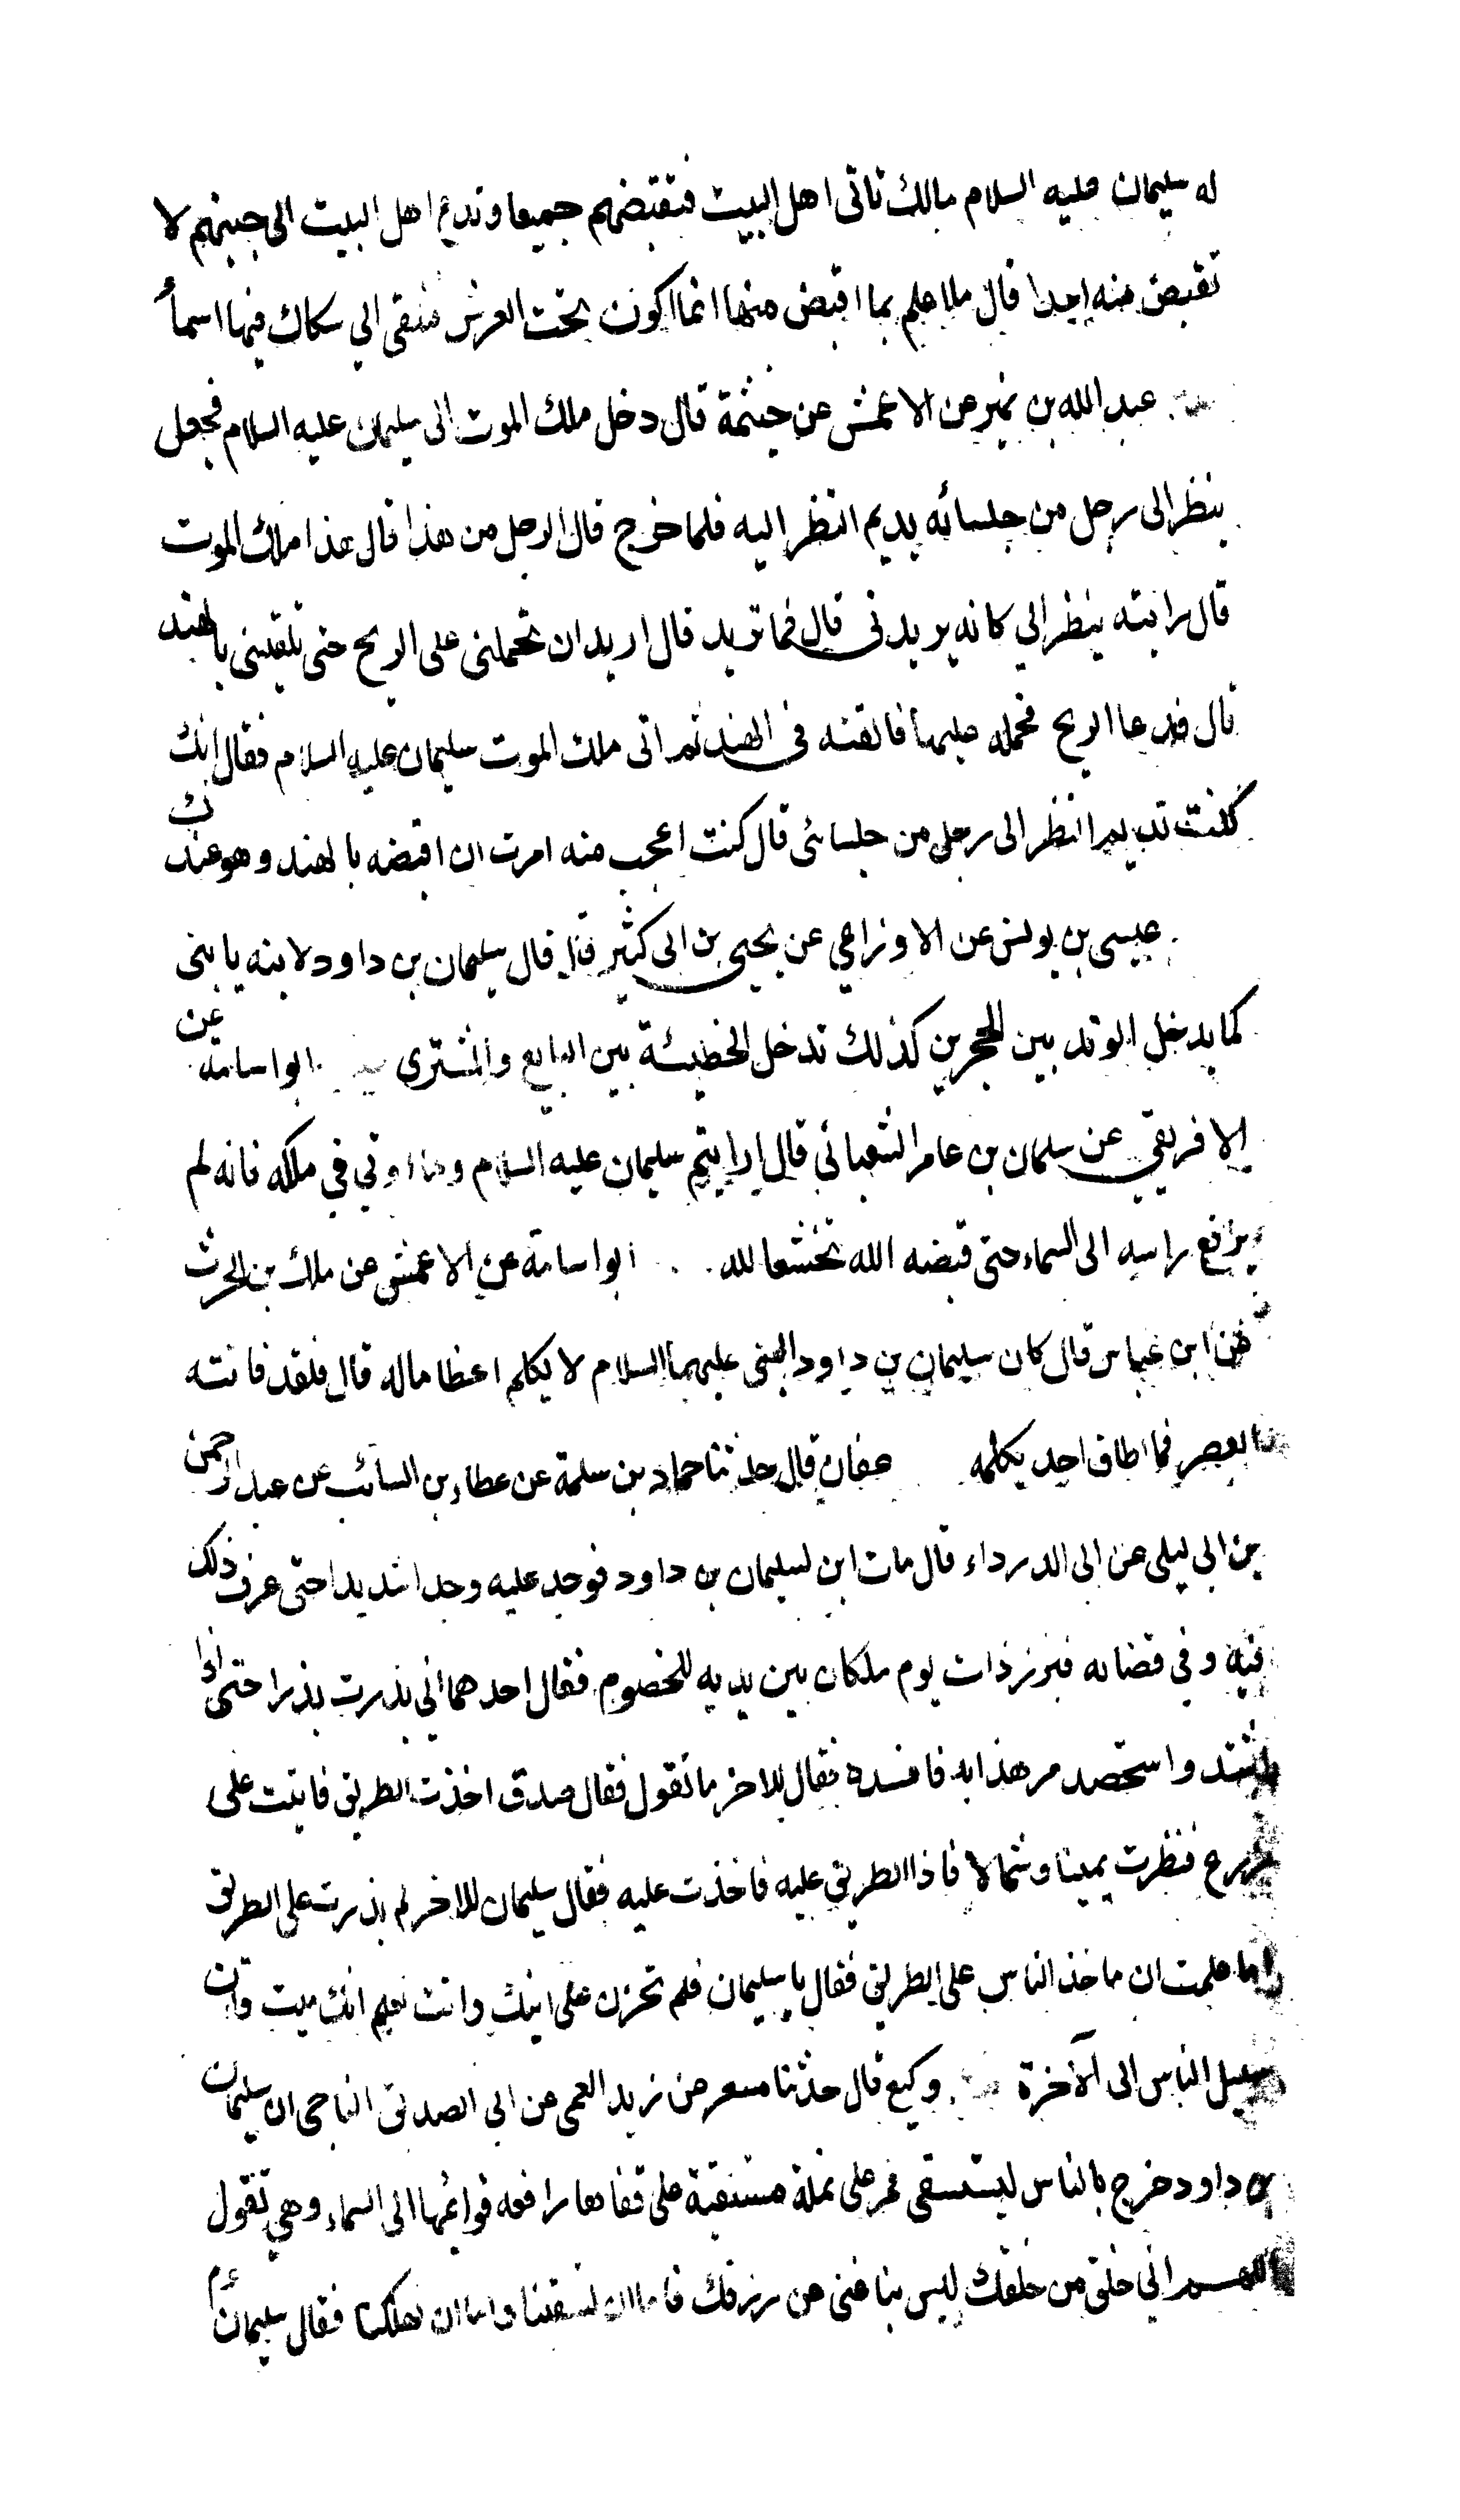 له سليمان عليه السلام مالك تاتى اهل البيت فتقبضهم جميعا وتدع اهل البيت الى جنبهم لا
تقبض منه احدا قال ملا علم بما اقبض منها انما اكون تحت العرش فتلقى الي سكاك فيها اسمأ
عبد الله بن نمير عن الاعمش عن خيثمة قال دخل ملك الموت الى سليمان عليه السلام فجعل
ينظر الى رجل من جلسائه يديم النظر اليه فلما خرج قال الرجل من هذا قال هذا ملك الموت
قال رايته ينظر الي كانه يريدنى قال فما تريد قال اريد ان تحملنى على الريح حتى تلقينى بالهند
قال فدعا الريح فحمله عليها فالقته فى الهند ثم اتى ملك الموت سليمان عليه السلام فقال انك
كنت تديم النظر الى رجل من جلسائى قال كنت اعجب منه امرت ان اقبضه بالهند وهو عندك
عيسى بن يونس عن الاوزاعي عن يحيى بن ابى كثير قال قال سليمان بن داود لابنه يا بنى
كما يدخل الوتد بين الحجرين كذلك تدخل الخطيئة بين البايع والمشترى ابو اسامة عن
الافريقي عن سلمان بن عامر الشعبانى قال ارايتم سليمان عليه السلام وما اوتي في ملكه فانه لم
يرفع راسه الى السماء حتى قبضه الله تخشعا لله ابو اسامة عن الاعمش عن ملك بن الحرث
عن ابن عباس قال كان سليمان بن داود النبى عليهما السلام لا يكلم اعظاما له قال فلقد فاتته
العصر فما اطاق احد يكلمه عفان قال حدثنا حماد بن سلمة عن عطاء بن السائب عن عبد الرحمن
بن ابي ليلى عن ابى الدرداء قال مات ابن لسليمان بن داود فوجد عليه وجدا شديدا حتى عرف ذلك
فيه وفي قضائه فبرز ذات يوم ملكان بين يديه للخصوم فقال احدهما اني بذرت بذرا حتى اذا
اشتد واستحصد مر هذا به فافسده فقال للاخر ما تقول فقال صدق اخذت الطريق فاتيت على
زرع فنظرت يمينا وشمالا فاذا الطريق عليه فاخذت عليه فقال سليمان للاخر لم بذرت على الطريق
اما علمت ان ماخذ الناس على الطريق فقال يا سليمان فلم تحزن على ابنك وانت تعلم انك ميت وان
سبيل الناس الى الآخرة وكيع قال حدثنا مسعر عن زيد العمى عن ابى الصديق الناجى ان سليمان
بن داود خرج بالناس ليستسقى فمر على نملة مستلقية على قفاها رافعه قوائمها الى السماء وهي تقول
اللهم اني خلق من خلقك ليس بنا غنى عن رزقك فاما ان تسقينا واما ان تهلكنا فقال سليمان ءم